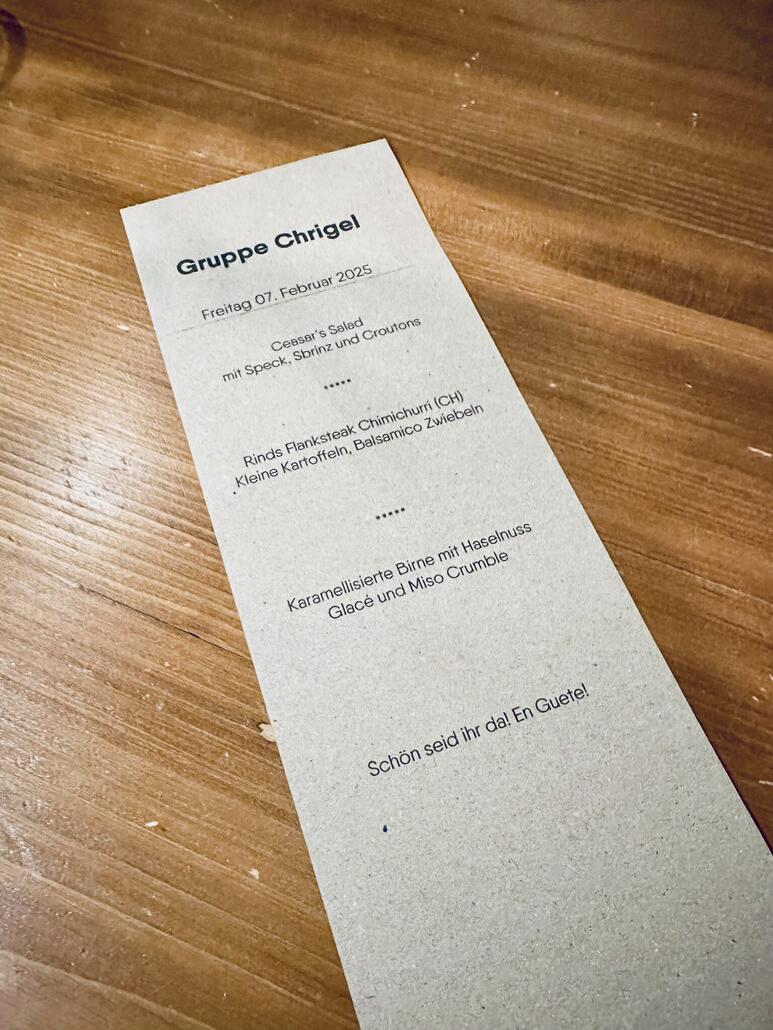 Gruppe Chrigel
Freitag 07. Februar 2025
Ceasar's Salad
mit Speck, Sbrinz und Croutons
•••••
Rinds Flanksteak Chimichurri (CH)
Kleine Kartoffeln, Balsamico Zwiebeln
•••••
Karamellisierte Birne mit Haselnuss
Glacé und Miso Crumble
Schön seid ihr da! En Guete!